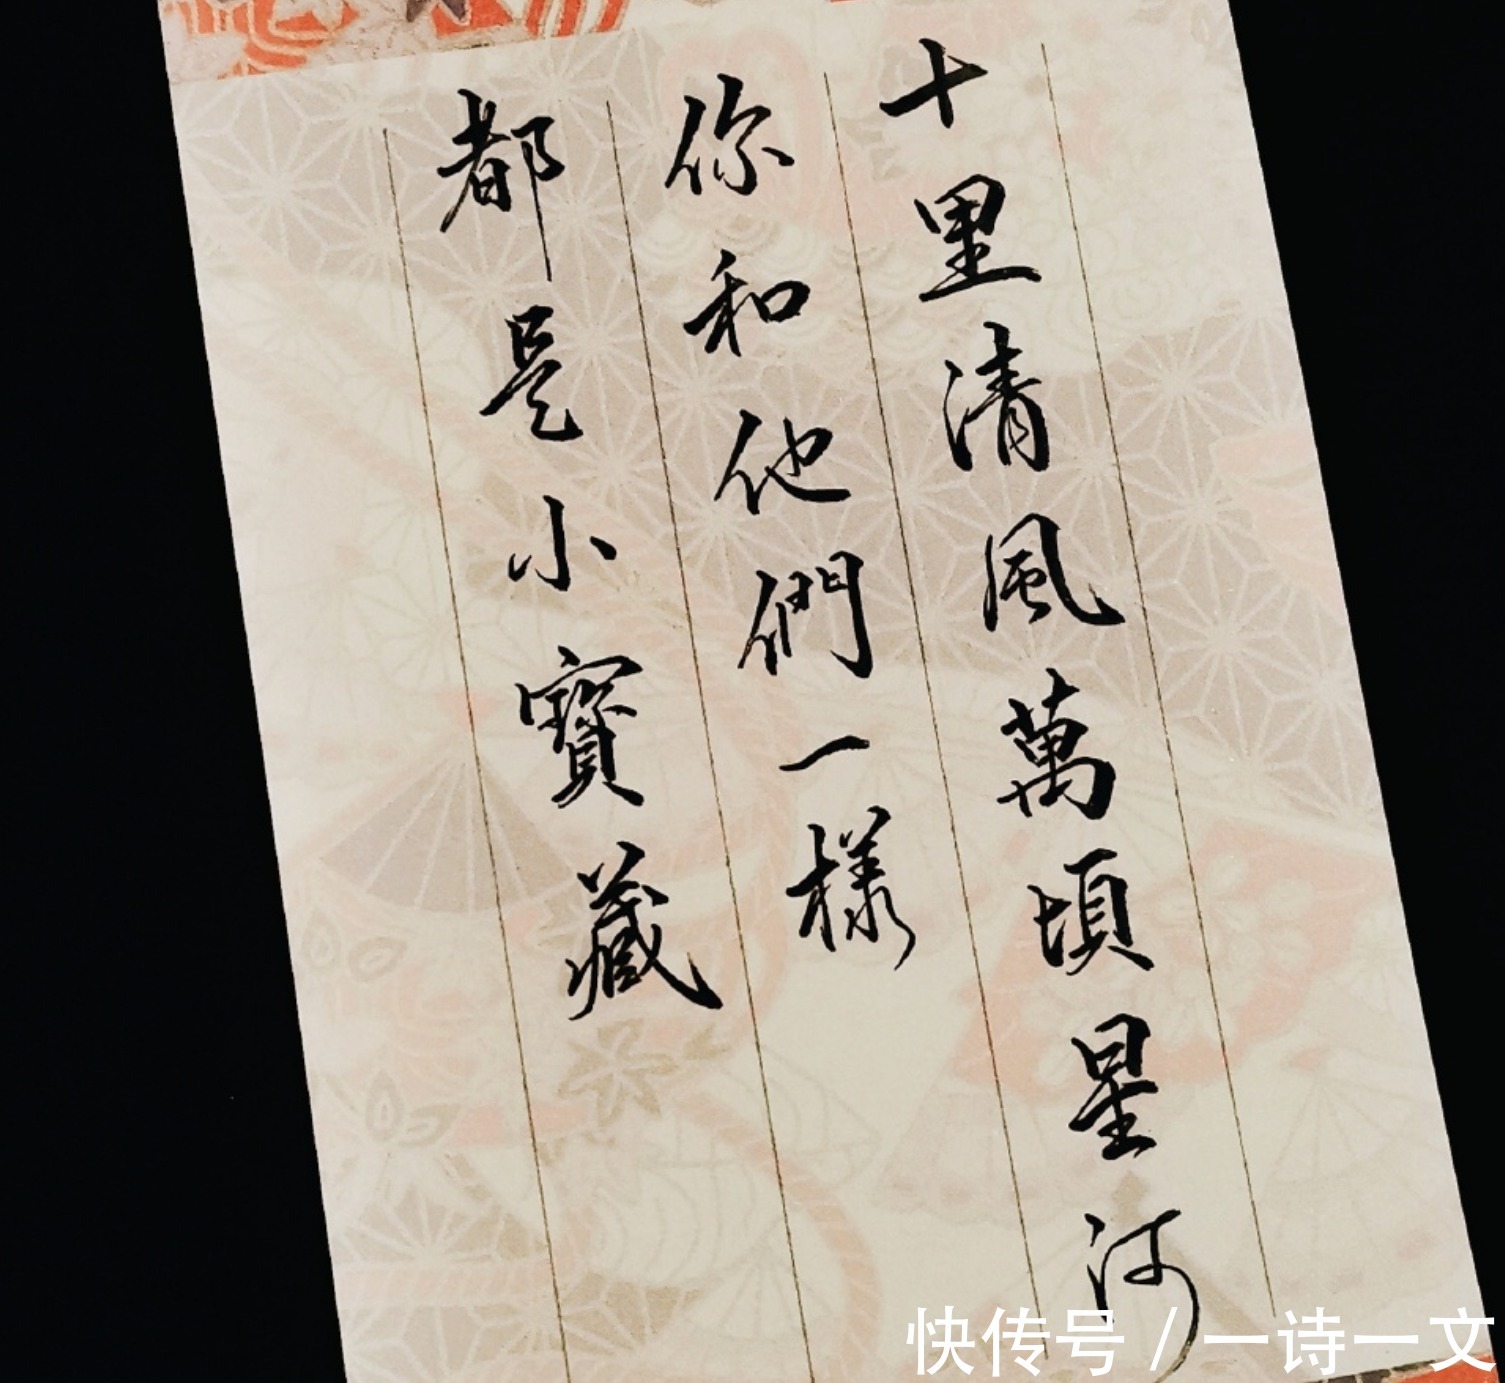 十里清風萬頃星河
你和他們一樣
都是小寶藏
快传号 / 一诗一文